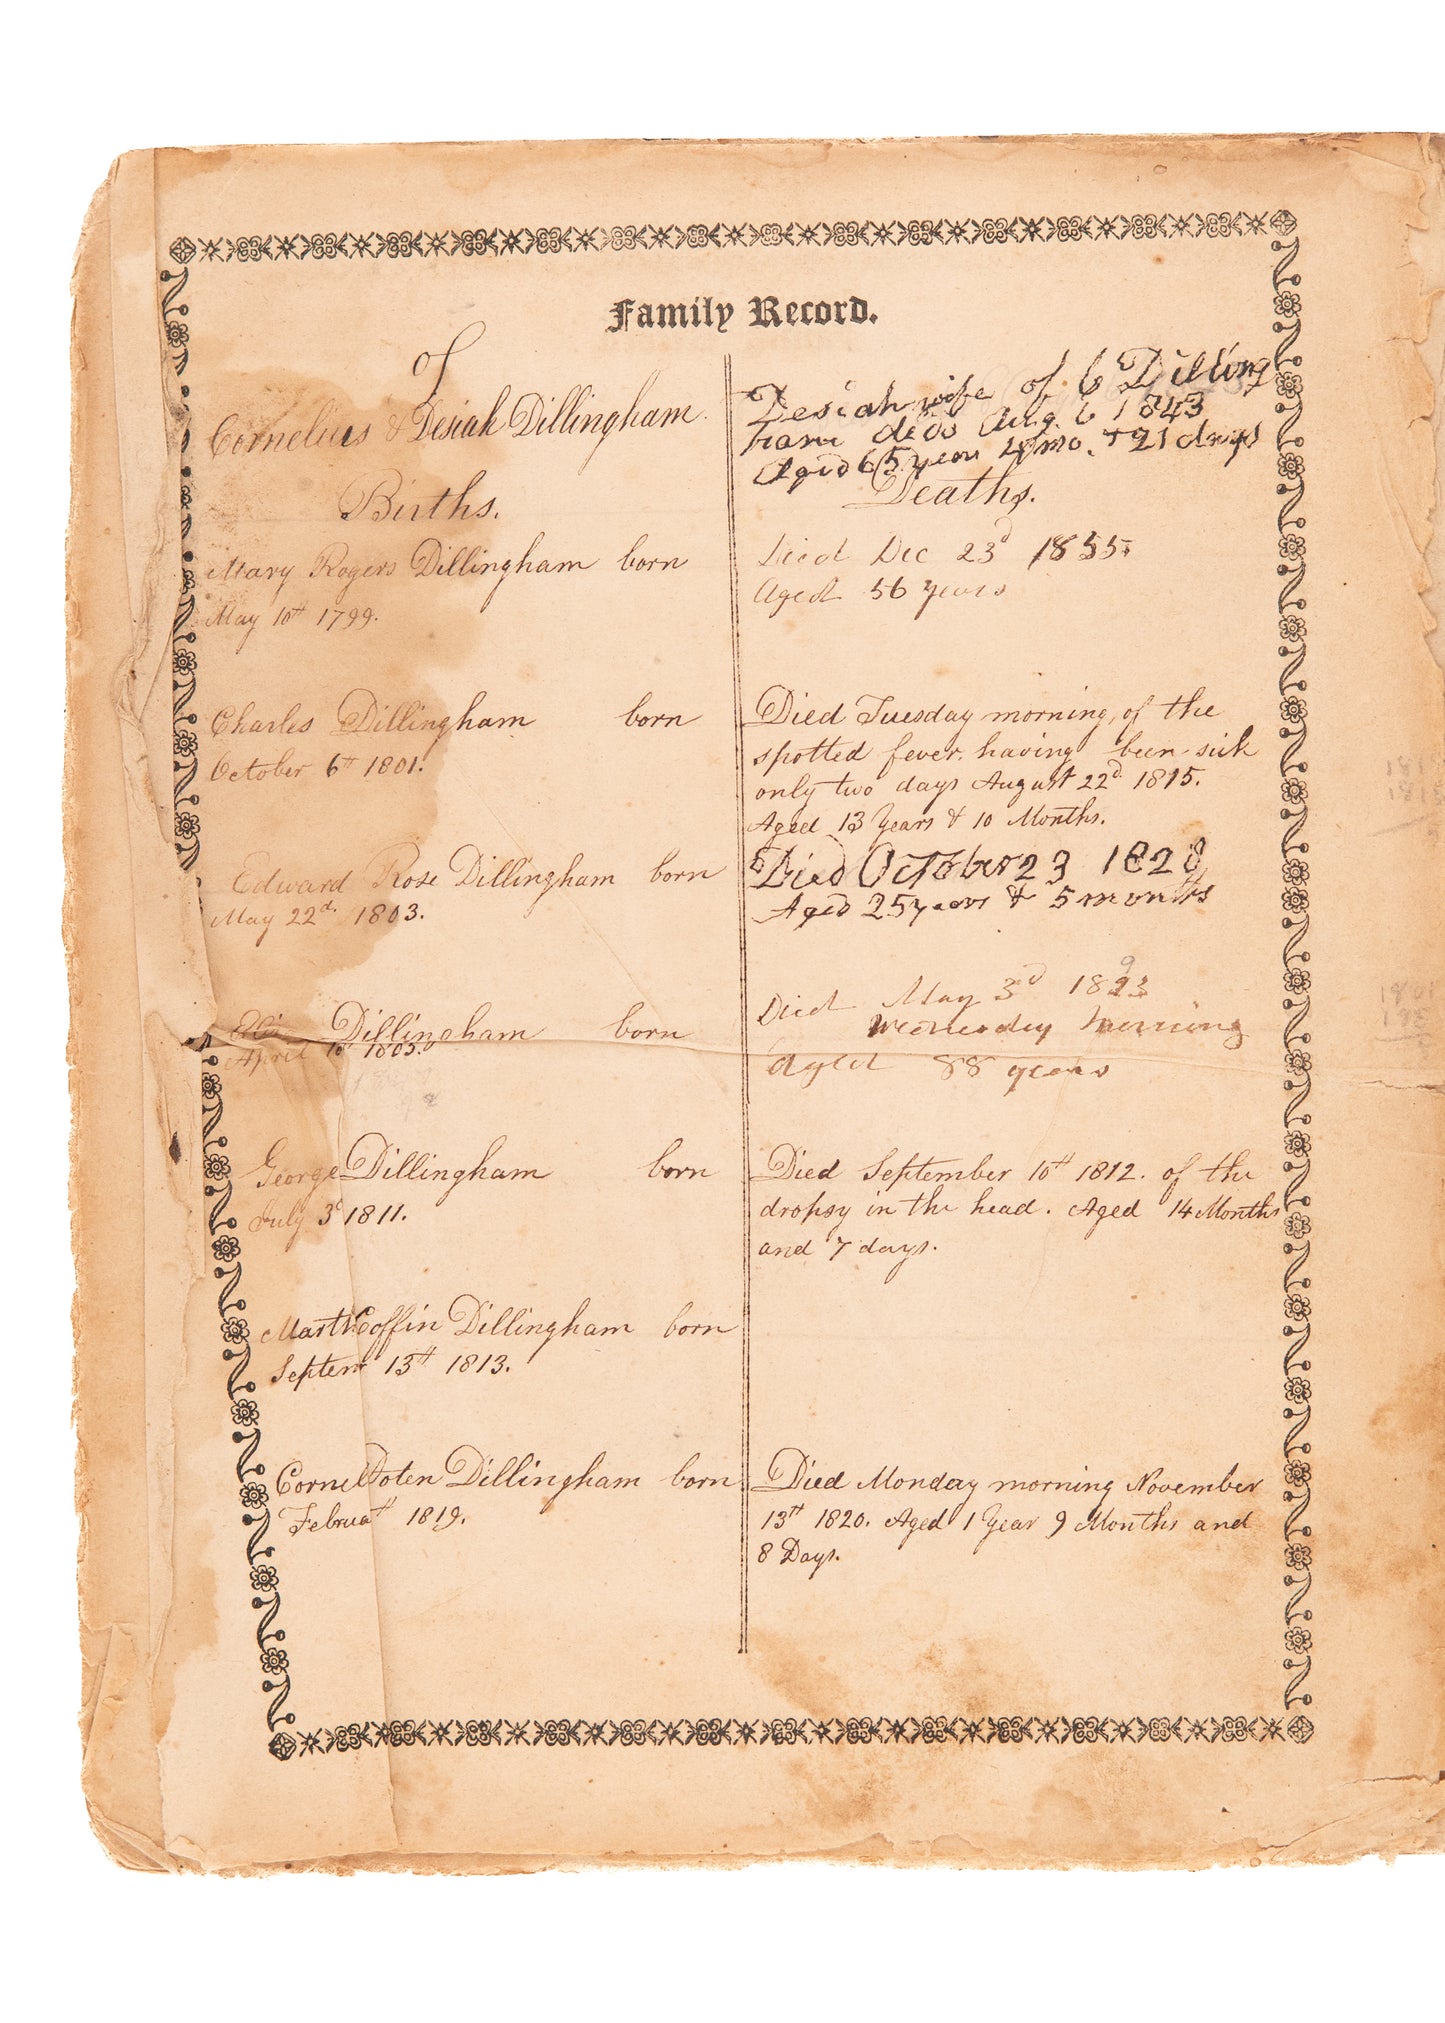 Family Record.
of
Cornelius & Desiah Dillingham
Births.
Mary Rogers Dillingham born
May 10th 1799.
Charles Dillingham born
October 6th 1801.
Edward Rose Dillingham born
May 22d. 1803.
Dillingham born
April 1805.
George Dillingham born
July 3d 1811.
Marth Coffin Dillingham born
Septem 13th 1813.
Cornel Doten Dillingham born
Februa th 1819.
Desiah wife of C Dilling
ham died Aug. 6 1843
Aged 65 years 4 mo. + 21 days
Deaths.
Died Dec 23d 1855
Aged 56 years
Died Tuesday morning, of the
spotted fever. having been sick
only two days August 22d. 1815.
Aged 13 Years & 10 Months.
Died October 23 1828
Aged 25 years & 5 months
Died May 3d 1893
Wednesday morning
aged 88 years
Died September 10th 1812. of the
dropsy in the head. Aged 14 Months
and 7 days.
Died Monday morning November
13th 1820. Aged 1 Year 9 Months and
8 Days.